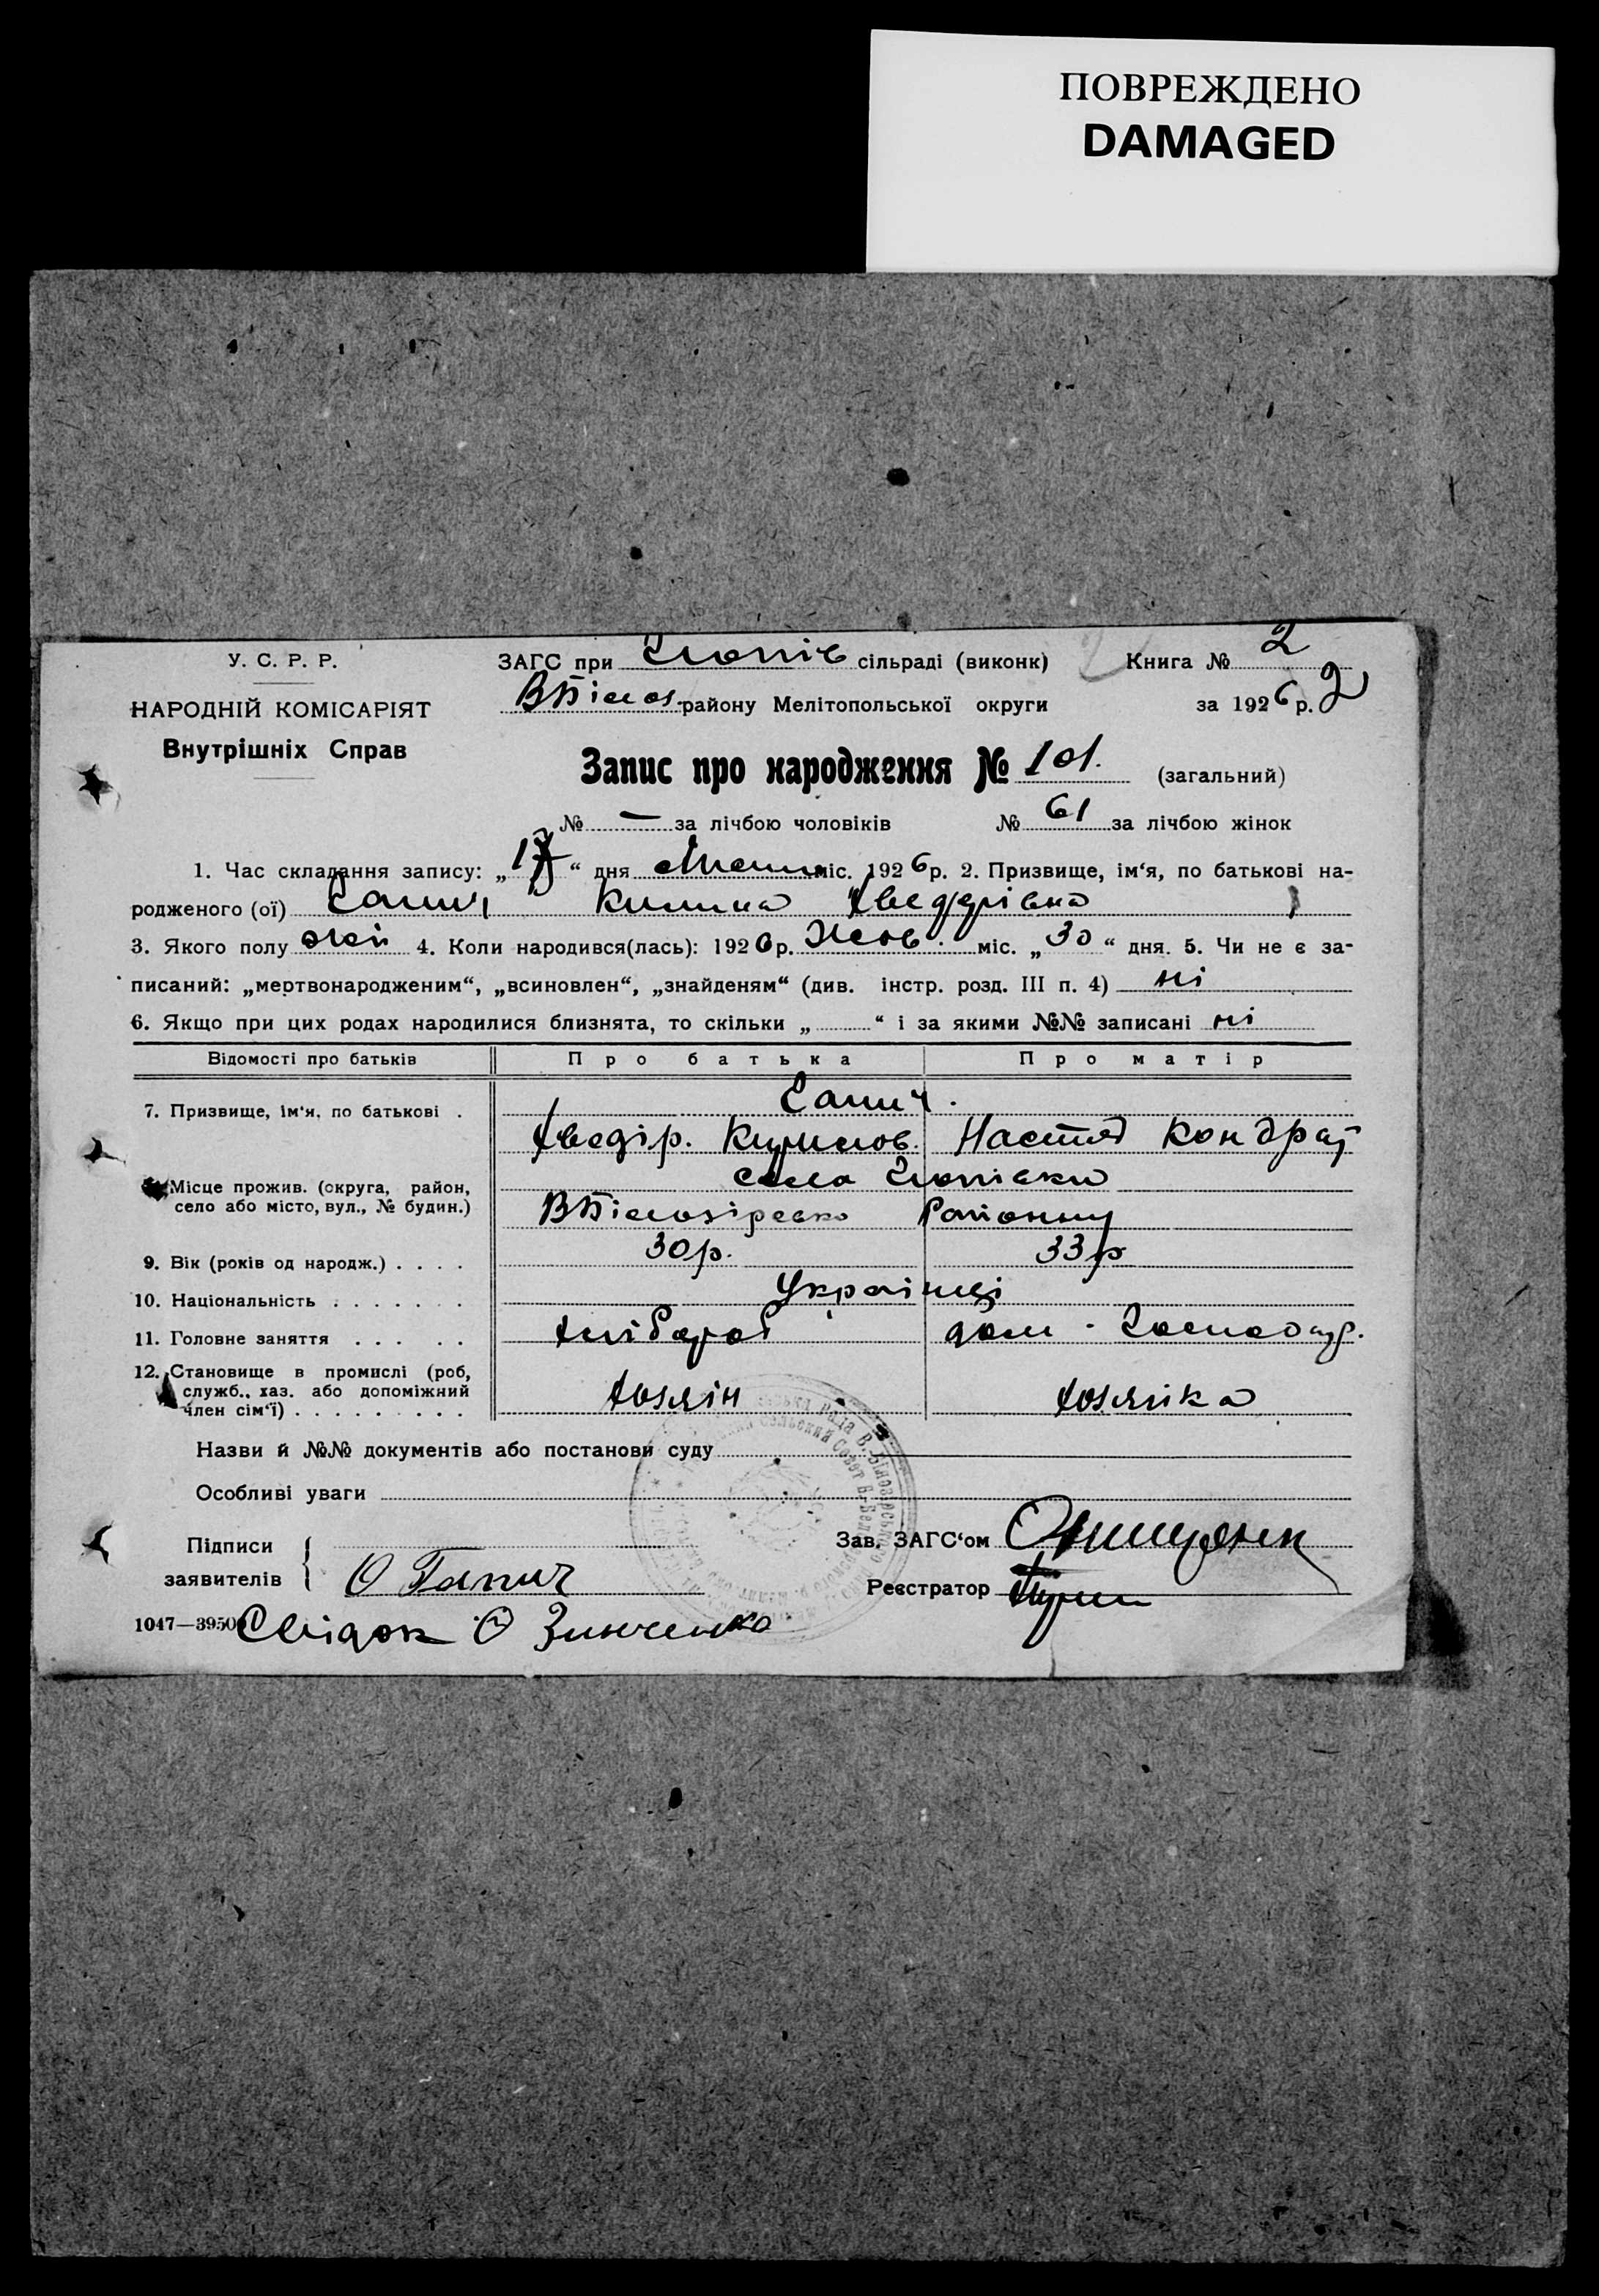 ПОВРЕЖДЕНО
DAMAGED
У. С. Р. Р.
НАРОДНІЙ КОМІСАРІЯТ
Внутрішніх Справ
ЗАГС при сільраді (виконк) Книга № 2
ВБілоз. району Мелітопольської округи за 1926 р. 2
Запис про народження № 101. (загальний)
№ — за лічбою чоловіків № 61 за лічбою жінок
1. Час складання запису: „17“ дня міс. 1926 р. 2. Призвище, ім‘я, по батькові на-
родженого (ої) Килина Хведорівна
3. Якого полу жен 4. Коли народився(лась): 1926 р. Жовт. міс. „30“ дня. 5. Чи не є за-
писаний: „мертвонародженим“, „всиновлен“, „знайденям“ (див. інстр. розд. III п. 4) ні
6. Якщо при цих родах народилися близнята, то скільки „ “ і за якими №№ записані ні
Відомості про батьків Про батька Про матір
7. Призвище, ім‘я, по батькові .
Хведір. Настя Кондрат
Місце прожив. (округа, район,
село або місто, вул., № будин.)
села
ВБілозірсько Району
9. Вік (років од народж.) . . . . 30 р. 33 р
10. Національність . . . . . . . Українці
11. Головне заняття . . . . . Хлібороб дом - господар.
12. Становище в промислі (роб,
служб., хаз. або допоміжний
член сім‘ї) . . . . . . . . . Хозяін Хозяйка
Назви й №№ документів або постанови суду
Особливі уваги
Підписи
заявителів
О Гапич
Зав. ЗАГС‘ом
Реєстратор
1047—3950
Свідок О Зинченко